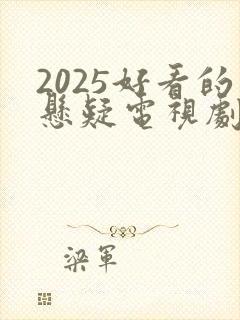 2025好看的
懸疑電視劇
梁軍